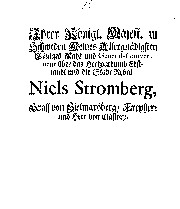 Ihrer Königl. Majest. in
Schweden Meines Allergnädigsten
Königes Raht und General-Gouver-
neur über das Hertzogthumb Ehst-
landt und die Stadt Reval
Niels Stromberg,
Graff von Freyherr
und Herr von